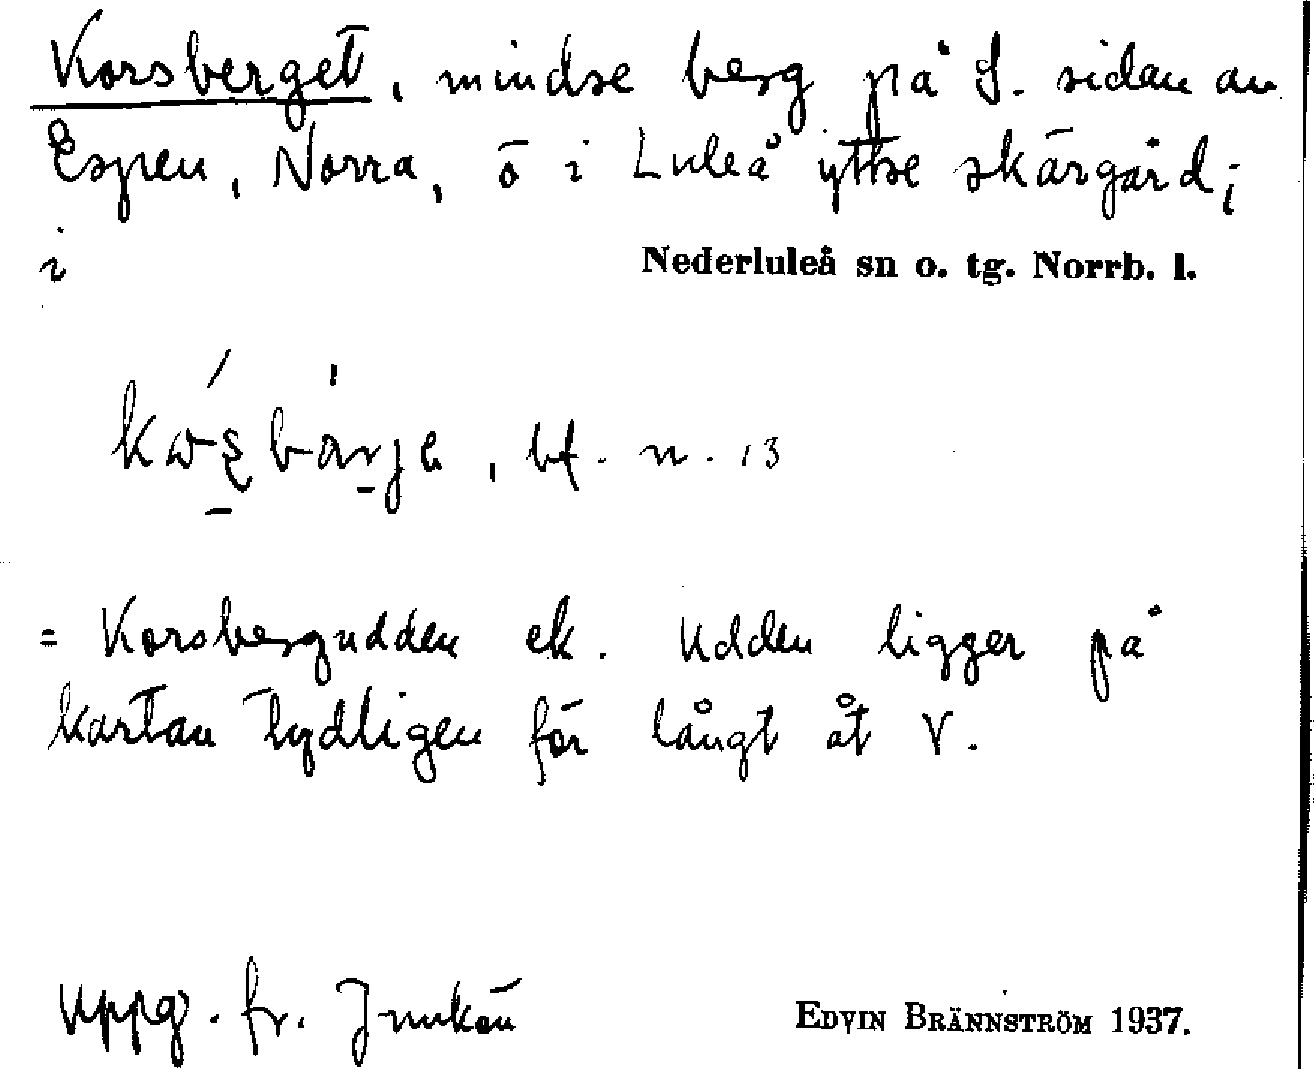 Korsberget, mindre berg på S. sidan av
Espen, Norra, ö i Luleå yttre skärgård;
i
Nederluleå sn o. tg. Norrb. l.
bf. n. 13
= Korsbergudden ek. Udden ligger på
kartan tydligen för långt åt V.
Uppg. fr. Junkön
EDVIN BRÄNNSTRÖM 1937.